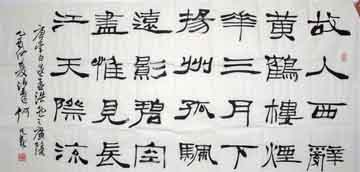 故人西辭
黄鶴樓煙
華三月下
揚州孤颿
遠影碧空
盡惟見長
江天際流
唐李白送孟浩然之廣陵